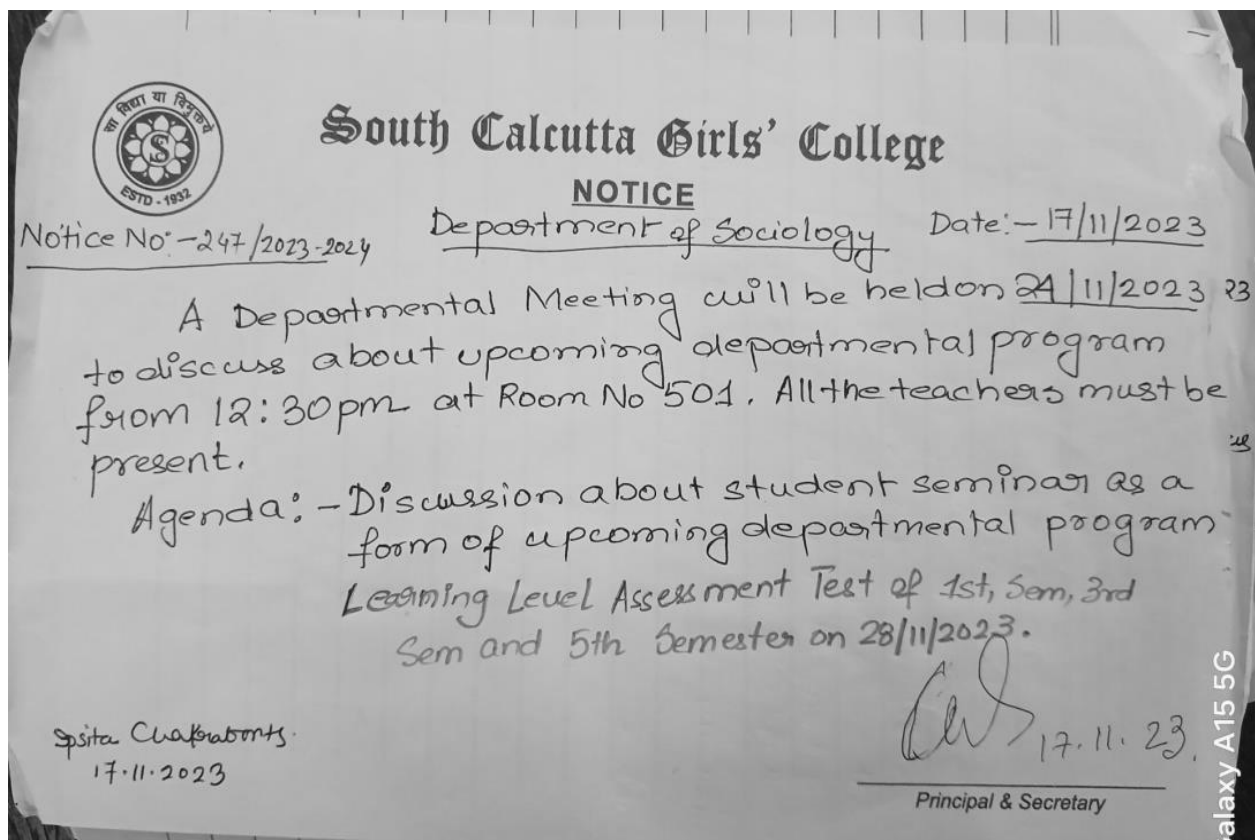 सा विद्या या विमुक्तये
S
ESTD - 1932
South Calcutta Girls' College
NOTICE
Notice No:-247/2023-2024
Department of Sociology
Date:- 17/11/2023
A Departmental Meeting will be held on 24/11/2023 23
to discuss about upcoming departmental program
from 12:30pm at Room No 501. All the teachers must be
present.
Agenda:- Discussion about student seminar as a
form of upcoming departmental program
Learning Level Assessment Test of 1st, Sem, 3rd
Sem and 5th Semester on 28/11/2023.
Ipsita Chakraborty.
17.11.2023
17.11.23.
Principal & Secretary
alaxy A15 5G